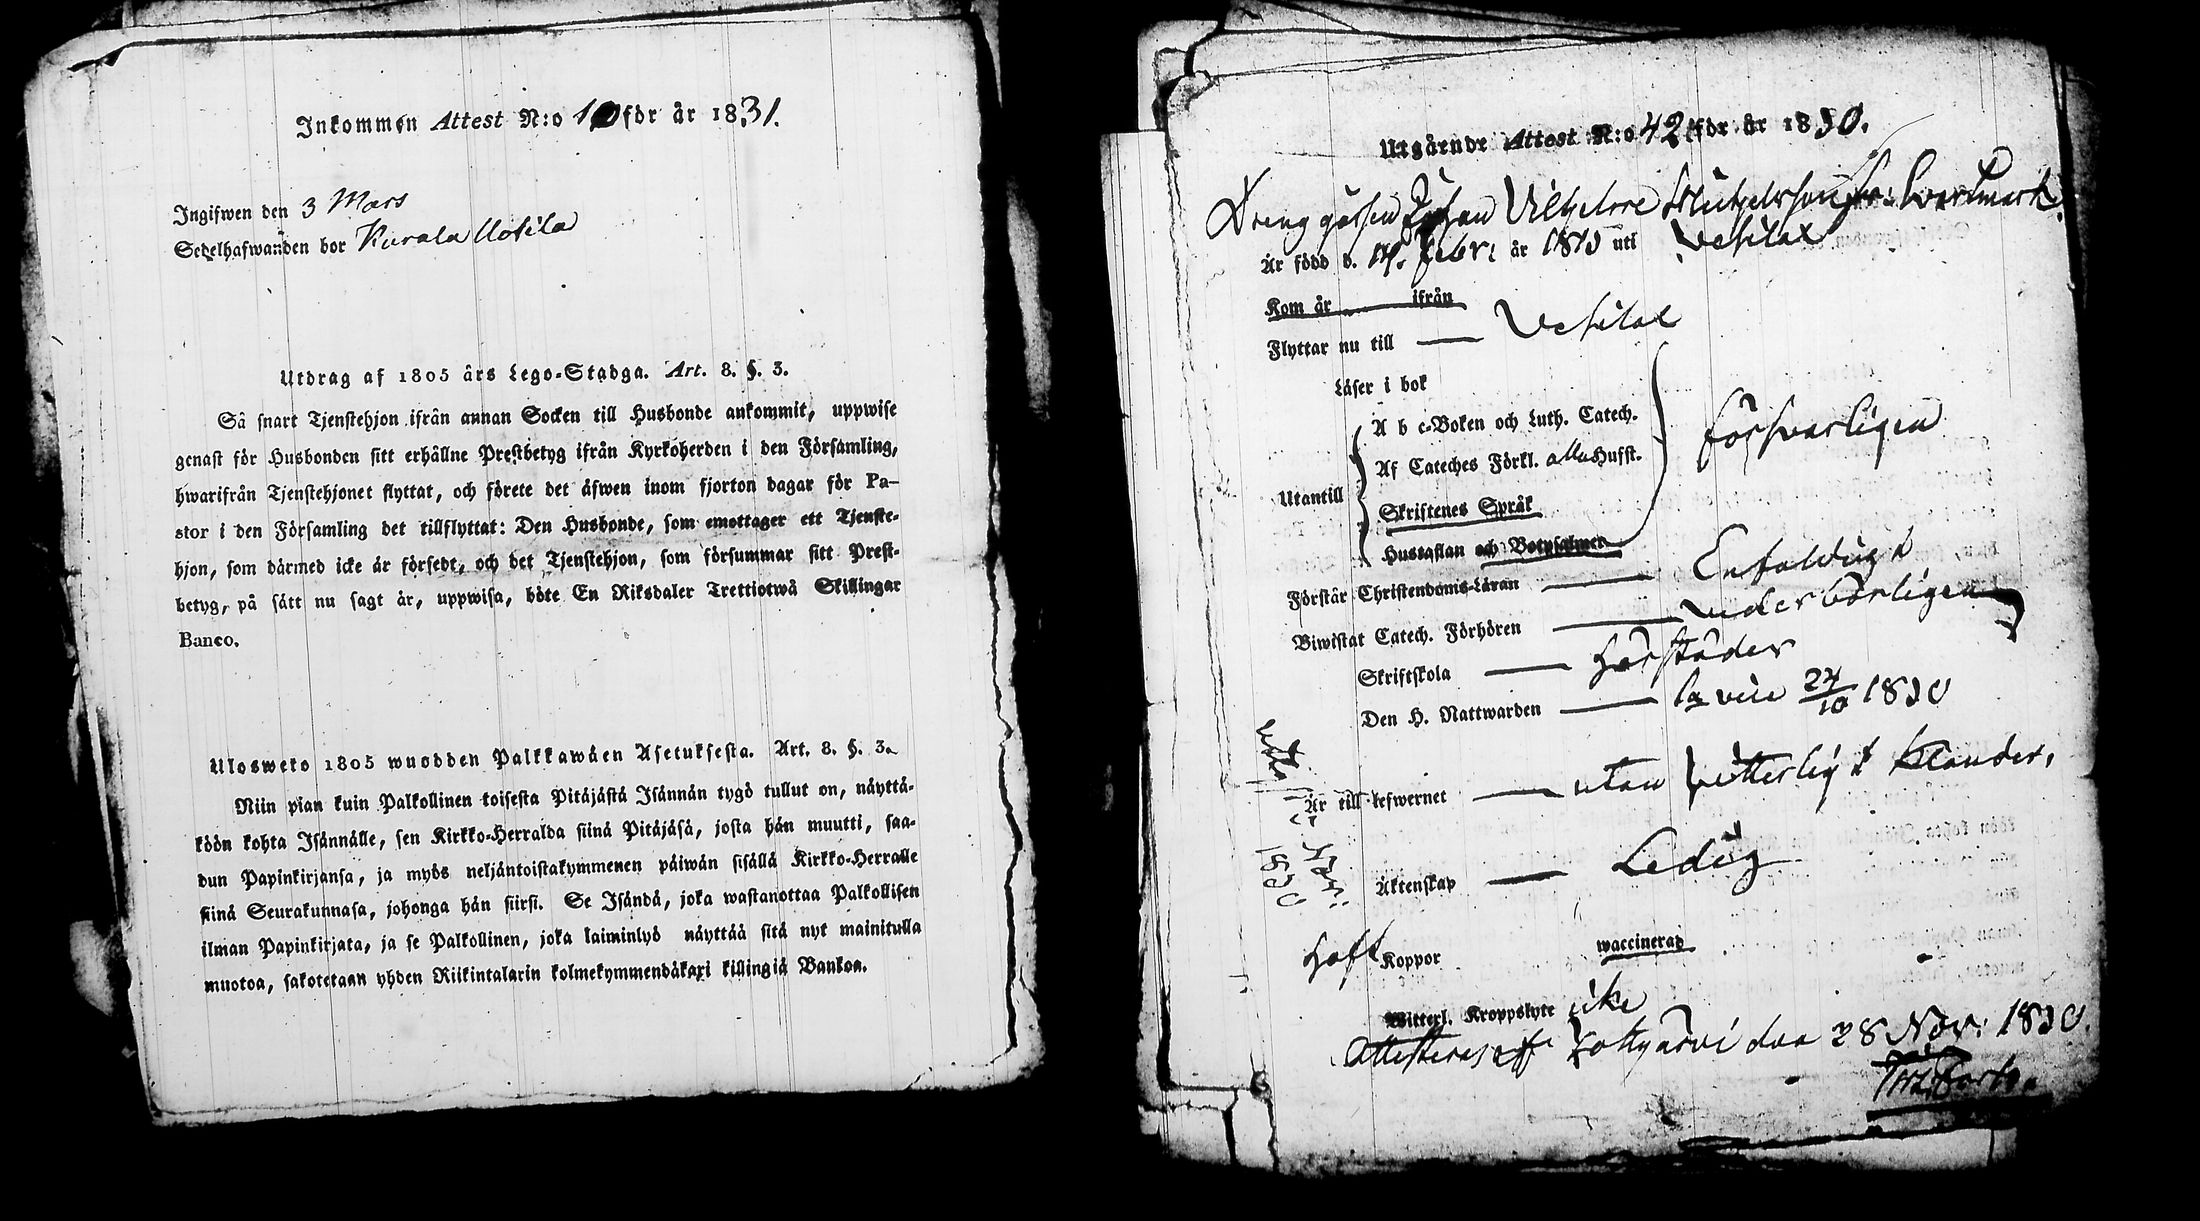 Inkommen Attest N:o 10 för år 1831.
Ingifwen den 3 Mars
Sedelhafwanden bor Kurala Uotila
Utdrag af 1805 års Lego-Stadga. Art. 8. §. 3.
Så snart Tjenstehjon ifrån annan Socken till Husbonde ankommit, uppwise
genast för Husbonden sitt erhållne Prestbetyg ifrån Kyrkoherden i den Församling,
hwarifrån Tjenstehjonet flyttat, och förete det äfwen inom fjorton dagar för Pa-
stor i den Församling det tillflyttat: Den Husbonde, som emottager ett Tjenste-
hjon, som därmed icke är försedt, och det Tjenstehjon, som försummar sitt Prest-
betyg, på sätt nu sagt är, uppwisa, böte En Riksdaler Trettiotwå Skillingar
Banco.
Ulosweto 1805 wuodden Palkkawäen Asetuksesta. Art. 8. §. 3.
Niin pian kuin Palkollinen toisesta Pitäjästä Isännän tygö tullut on, näyttä-
köön kohta Isännälle, sen Kirkko-Herralda siinä Pitäjäsä, josta hän muutti, saa-
dun Papinkirjansa, ja myös neljäntoistakymmenen päiwän sisällä Kirkko-Herralle
siinä Seurakunnasa, johonga hän siirsi. Se Isändä, joka wastanottaa Palkollisen
ilman Papinkirjata, ja se Palkollinen, joka laiminlyö näyttää sitä nyt mainitulla
muotoa, sakotetaan yhden Riikintalarin kolmekymmendäkaxi killingiä Bankoa.
Utgående Attest N:o 42 för år 1830.
Drenggossen Johan Vilhelm
Är född d. 14. Febr: år 1815 uti Vesilax
Kom år ifrån
Flyttar nu till Vesilax
Läser i bok
A b c-Boken och Luth. Catech.
Af Cateches Förkl. alla Hufst.
försvarligen
Utantill
Skriftenes Språk
Hustaflan och Botpsalmer
Förstår Christendoms-Läran Enfaldigt
Biwistat Catech. Förhören vederbörligen
Skriftskola
Den H. Nattwarden 24/10 1830
Är till lefwernet utan vitterligt klander.
1830
Äktenskap Ledig
Haft Koppor waccinerad
Witterl. Kroppslyte ike
Attesteras af Lottijärvi den 28 Nov: 1830.